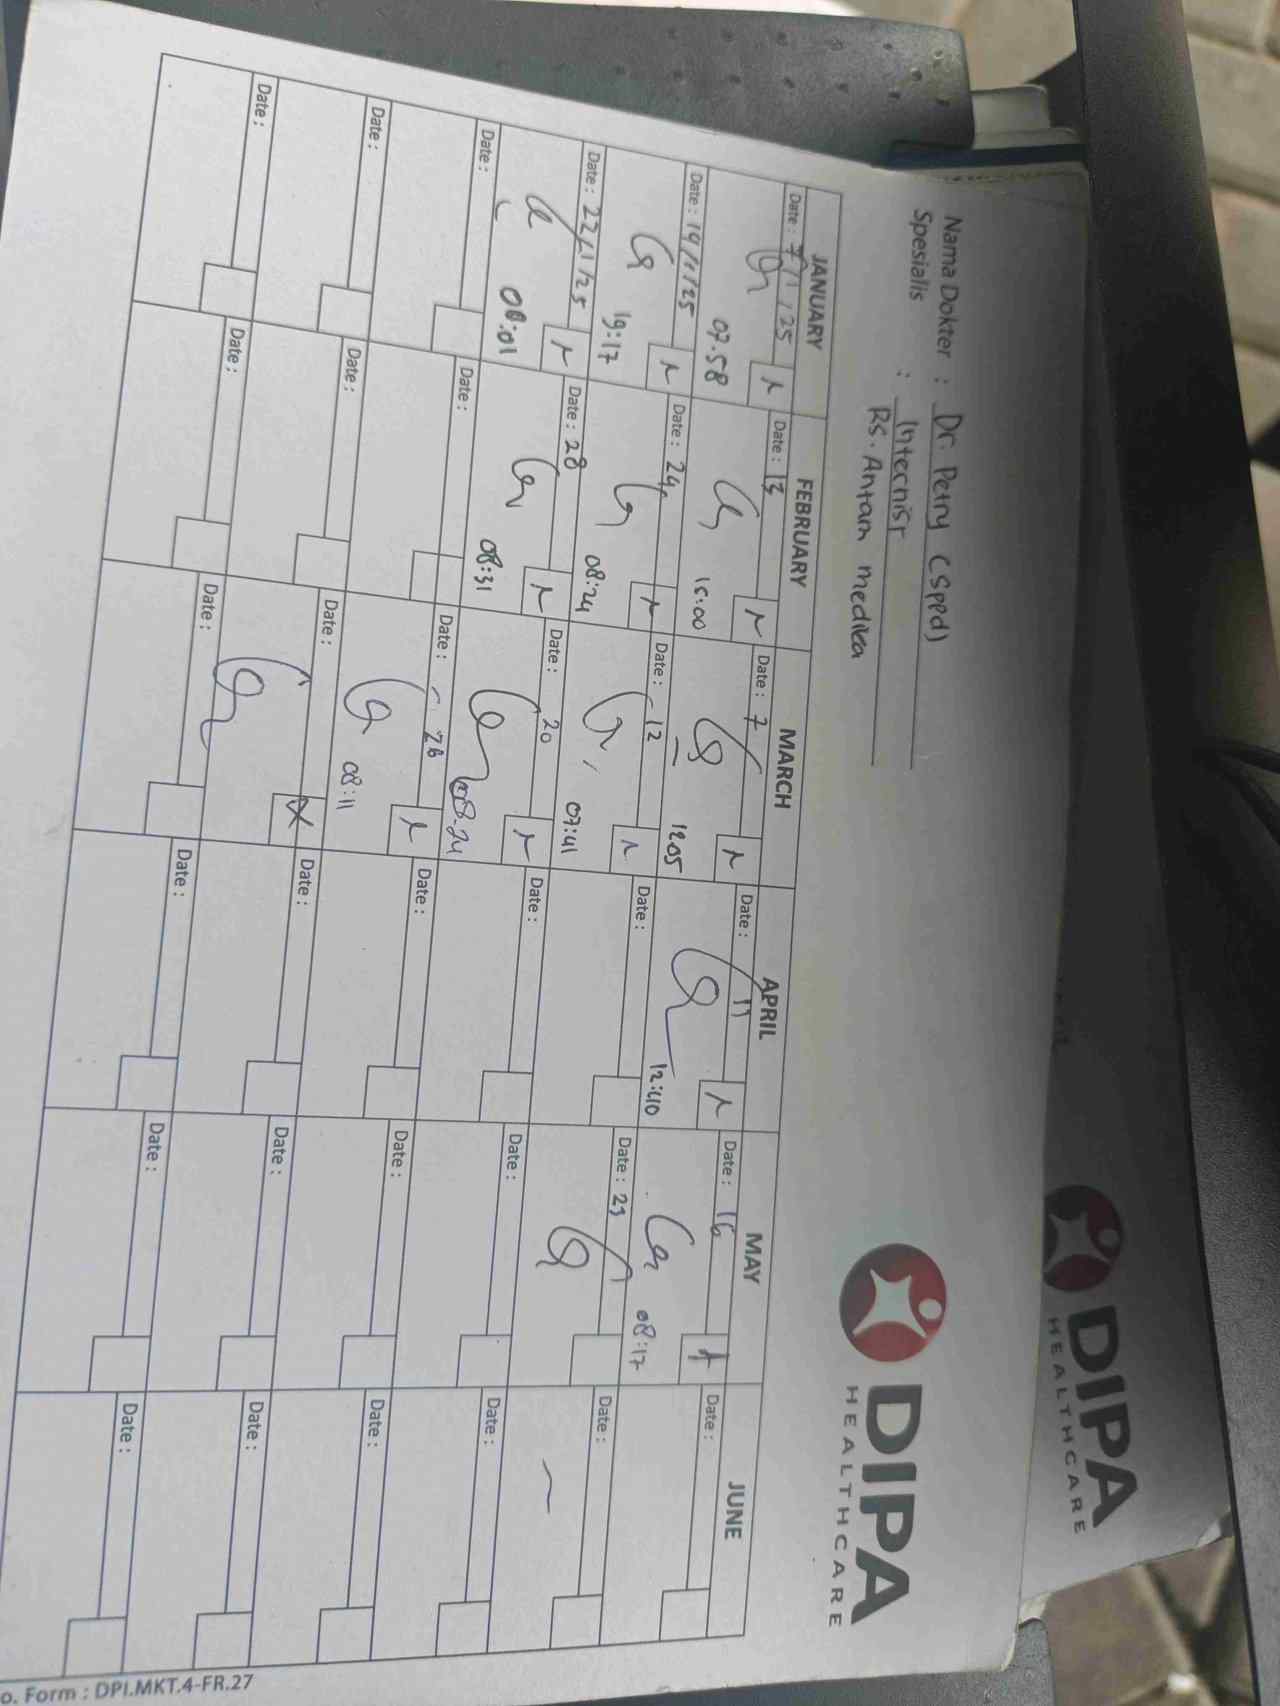 DIPA
HEALTHCARE
DIPA
HEALTHCARE
Nama Dokter : Dr. Petry (Sppd)
Spesialis : Internist
RS. Antam medika
JANUARY FEBRUARY MARCH APRIL MAY JUNE
Date : 7/1/25 Date : 13 Date : 7 Date : 11 Date : 16 Date :
07.58 15:00 12.05 12:40 08:17
Date : 19/1/25 Date : 24 Date : 12 Date : Date : 23 Date :
19:17 08:24 07:41
Date : 22/1/25 Date : 28 Date : 20 Date : Date : Date :
08:01 08:31 08.24
Date : Date : Date : 26 Date : Date : Date :
08:11
Date : Date : Date : Date : Date : Date :
Date : Date : Date : Date : Date : Date :
o. Form : DPI.MKT.4-FR.27